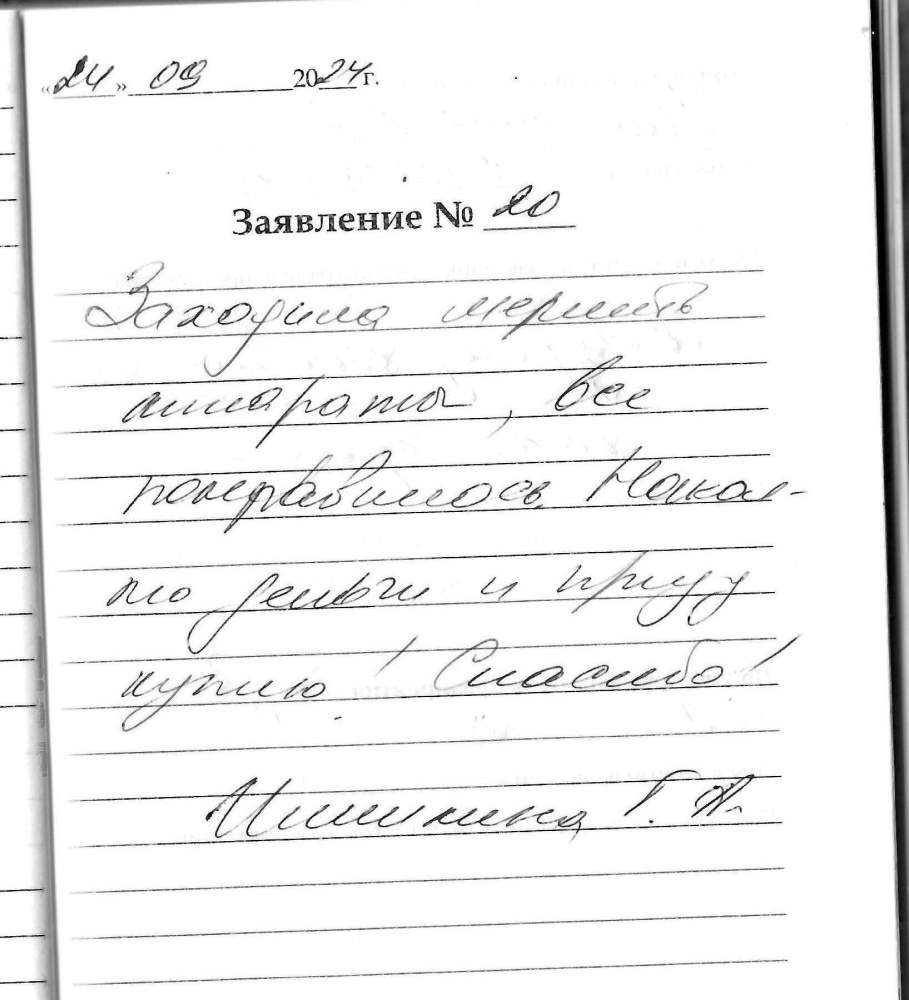 «24» 09 2024г.
Заявление № 20
Заходила мерить
аппараты, все
понравилось. Накоп-
лю деньги и приду
куплю! Спасибо!
Г. А.